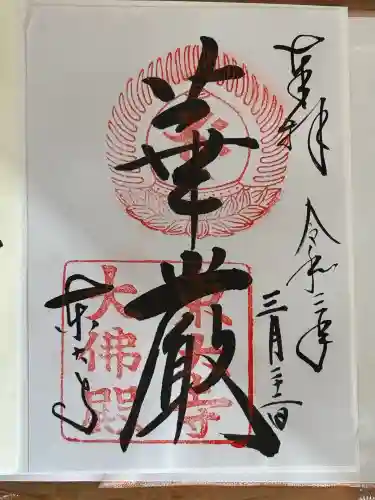 奉拝
令和三年
三月二十一日
華厳
東大寺
東大寺
大佛殿